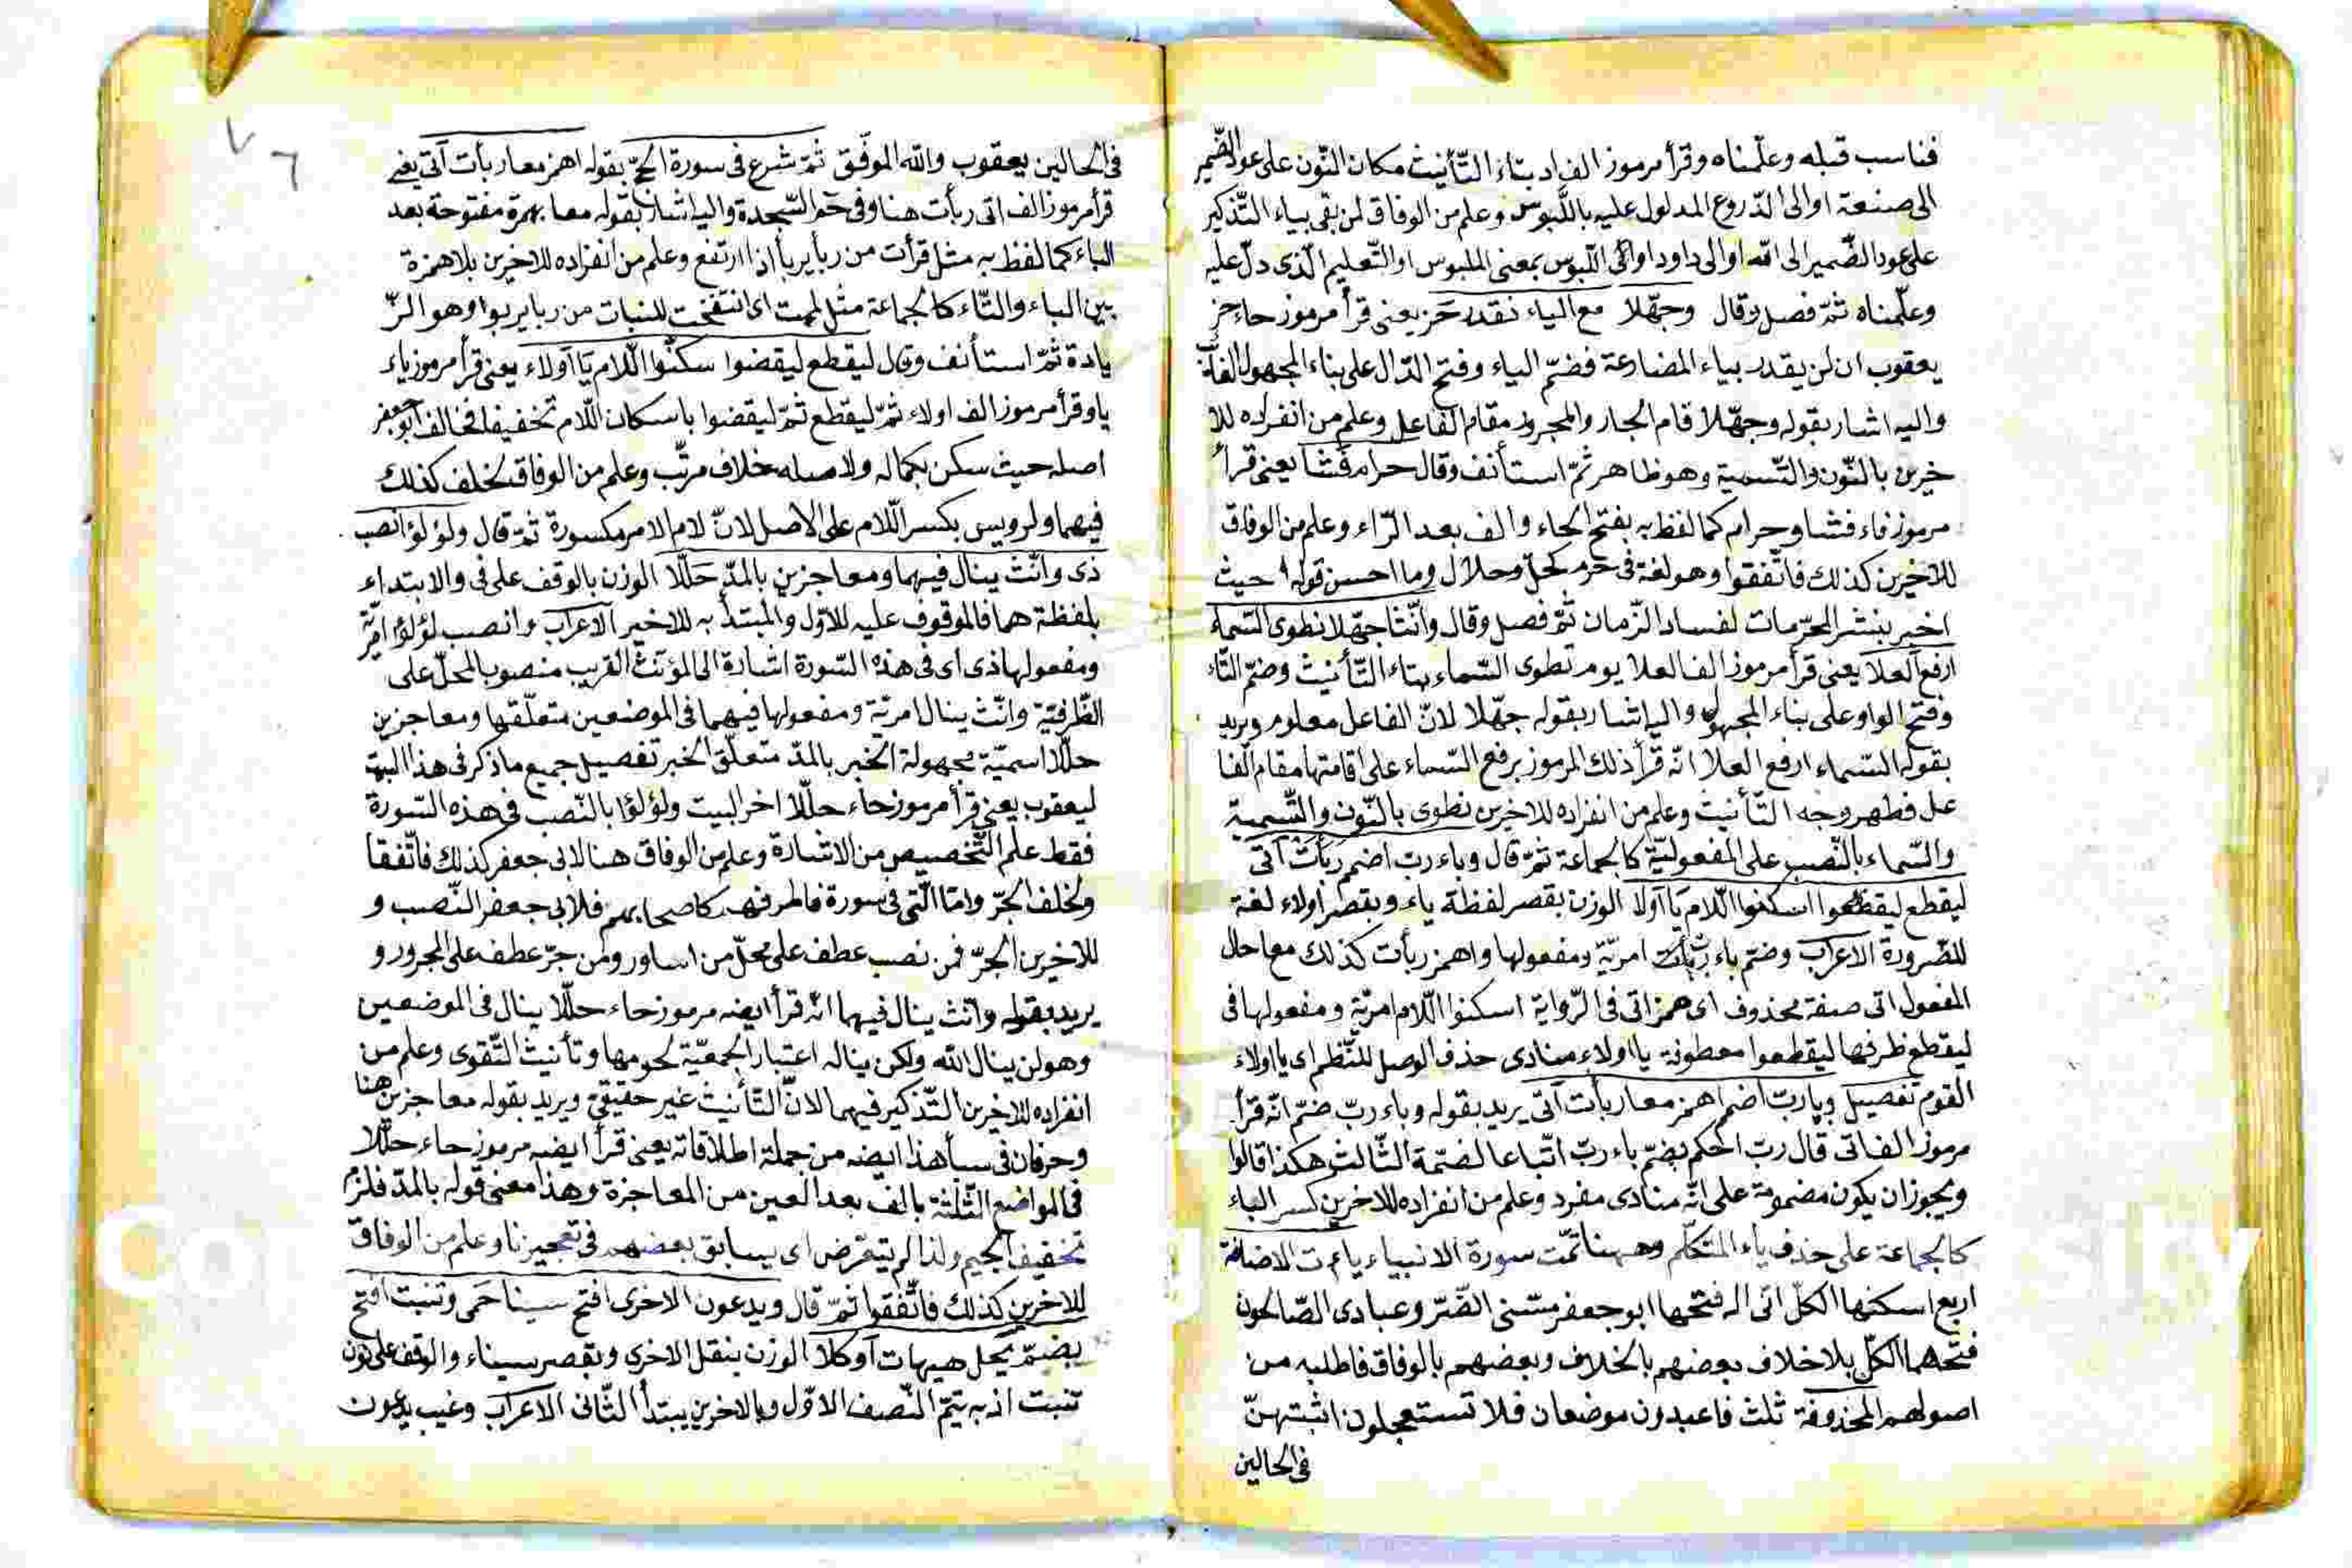 فناسب قبله وعلّمناه وقرأ مرموز الف اد بتاء التّأنيث مكان النّون على عود الضّمير
الى صنعة او الى الدّروع المدلول عليه باللّبوس وعلم من الوفاق لمن بقى بياء التّذكير
على عود الضّمير الى الله او الى داود او الى اللّبوس بمعنى الملبوس او التّعليم الّذى دلّ عليه
وعلّمناه ثمّ فصل وقال وجهّلا مع الياء نقدر حز يعنى قرأ مرموز حاء حز
يعقوب ان لن يقدر بياء المضارعة فضمّ الياء وفتح الدّال على بناء المجهول
واليه اشار بقوله وجهّلا قام الجار والمجرور مقام الفاعل وعلم من انفراده للا
خرين بالنّون والتّسمية وهو ظاهر ثمّ استأنف وقال حرام فشا يعنى قرأ
مرموز فاء فشا وحرام كما لفظ به بفتح الحاء والف بعد الرّاء وعلم من الوفاق
للاخرين كذلك فاتّفقوا وهو لغة فى حرم كحلّ وحلال وما احسن قوله حيث
اخبر بنشر المحرّمات لفساد الزّمان ثمّ فصل وقال وانّثا جهّلا نطوى السّماء
ارفع العلا يعنى قرأ مرموز الف العلا يوم تطوى السّماء بتاء التّأنيث وضمّ التّاء
وفتح الواو على بناء المجهول واليه اشار بقوله جهّلا لانّ الفاعل معلوم ويريد
بقوله السّماء ارفع العلا انّه قرأ ذلك المرموز برفع السّماء على اقامتها مقام الفا
عل فظهر وجه التّأنيث وعلم من انفراده للاخرين نطوى بالنّون والتّسمية
والسّماء بالنّصب على المفعوليّة كالجماعة ثمّ قال وباء ربّ اضمم ربأت اتى
ليقطع ليقطعوا اسكنوا اللّام يا اولا الوزن بقصر لفظة ياء وبقصر اولاء لغة
للضّرورة الاعراب وضم باء ربأت امريّة ومفعولها واهمز ربأت كذلك معا حال
المفعول اتى صفة محذوف اى همز اتى فى الرّواية اسكنوا اللّام امريّة ومفعولها فى
ليقطع ظرفها ليقطعوا معطوفة يا اولاء منادى حذف الوصل للنّظم اى يا اولاء
القوم تفصيل وبا ربّ اضمم اهمز معا ربأت اتى يريد بقوله وباء ربّ ضمّ انّه قرأ
مرموز الف اتى قال ربّ احكم بضمّ باء ربّ اتّباعا لضمّة الثّالث هكذا قالوا
ويجوز ان يكون مضمومة على انّه منادى مفرد وعلم من انفراده للاخرين كسر الباء
كالجماعة على حذف ياء المتكلّم وههنا تمّت سورة الانبياء ياءت الاضافة
اربع اسكنها الكلّ انى اله فتحها ابو جعفر مسّنى الضّرّ وعبادى الصّالحون
فتحهما الكلّ بلا خلاف بعضهم بالخلاف وبعضهم بالوفاق فاطلبه من
اصولهم المحذوفة ثلث فاعبدون موضعان فلا تستعجلون اثبتهنّ
فى الحالين
٧٦
فى الحالين يعقوب والله الموفّق ثمّ شرع فى سورة الحجّ بقوله اهمز معا ربأت اتى يعنى
قرأ مرموز الف اتى ربأت هنا وفى حم السّجدة واليه اشار بقوله معا بهمزة مفتوحة بعد
الباء كما لفظ به مثل قرأت من ربأ يربأ اذا ارتفع وعلم من انفراده للاخرين بلا همزة
بين الباء والتّاء كالجماعة مثل لمت اى انتفخت للنبات من ربا يربوا وهو الزّ
يادة ثمّ استأنف وقال ليقطع ليقضوا سكنوا اللّام يا اولاء يعنى قرأ مرموز ياء
يا وقرأ مرموز الف اولاء ثمّ ليقطع ثمّ ليقضوا باسكان اللّام تخفيفا فخالف ابو جعفر
اصله حيث سكن بكماله ولاصله خلاف مرتّب وعلم من الوفاق لخلف كذلك
فيهما ولرويس بكسر اللّام على الاصل لانّ لام الامر مكسورة ثمّ قال ولؤلؤ انصب
ذى وانّث ينال فيهما ومعاجزين بالمدّ حلّلا الوزن بالوقف على فى والابتداء
بلفظة هما فالموقوف عليه للاوّل والمبتدأ به للاخير الاعراب وانصب لؤلؤ امريّة
ومفعولها ذى اى فى هذه السّورة اشارة الى المؤنّث القريب منصوب المحلّ على
الظّرفيّة وانّث ينال امريّة ومفعولها فيهما فى الموضعين متعلّقها ومعاجزين
حلّلا اسميّة مجهولة الخبر بالمدّ متعلّق الخبر تفصيل جميع ما ذكر فى هذا البيت
ليعقوب يعنى قرأ مرموز حاء حلّلا اخر البيت ولؤلؤا بالنّصب فى هذه السّورة
فقط علم التّخصيص من الاشارة وعلم من الوفاق هنا لابى جعفر كذلك فاتّفقا
ولخلف الجرّ وامّا الّتى فى سورة فاطر فهم كاصحابهم فلابى جعفر النّصب و
للاخرين الجرّ فمن نصب عطف على محلّ من اساور ومن جرّ عطف على المجرور و
يريد بقوله وانّث ينال فيهما انّه قرأ ايضه مرموز حاء حلّلا ينال فى الموضعين
وهو لن ينال الله ولكن يناله اعتبار الجمعيّة لحومها وتأنيث التّقوى وعلم من
انفراده للاخرين التّذكير فيهما لانّ التّأنيث غير حقيقى ويريد بقوله معاجزين هنا
وحرفان فى سبأ هذا ايضه من جملة اطلاقاته يعنى قرأ ايضه مرموز حاء حلّلا
فى المواضع الثّلثة بالف بعد العين من المعاجزة وهذا معنى قوله بالمدّ فلزم
تخفيف الجيم ولذا لم يتعرّض اى يسابق بعضهم فى تعجيزنا وعلم من الوفاق
للاخرين كذلك فاتّفقوا ثمّ قال ويدعون الاخرى افتح سينا حمى وتنبت افتح
بضمّ يحل هيهات اد كلا الوزن بنقل الاخرى وبقصر سيناء والوقف على نون
تنبت اذ به يتمّ النّصف الاوّل وبالاخرين يبتدأ الثّانى الاعراب وغيب يدعون